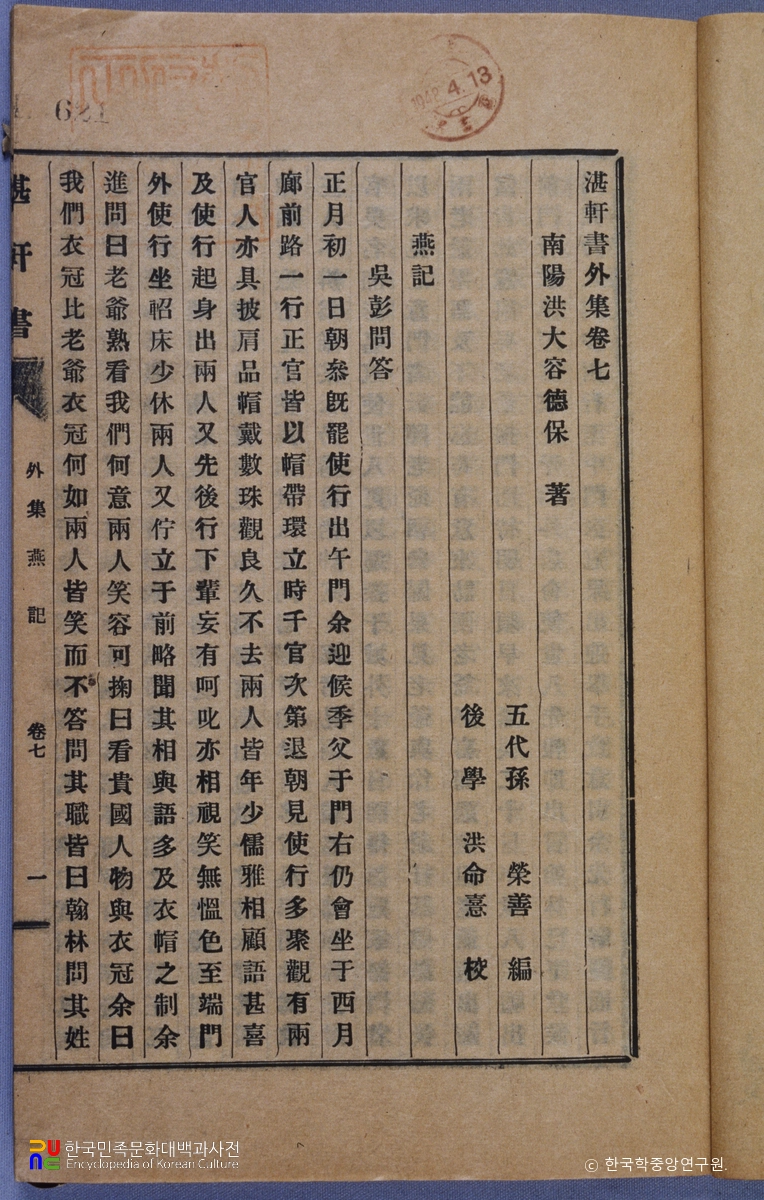 湛軒書外集卷七
南陽洪大容德保 著
五代孫 榮善 編
後學 洪命憙 校
燕記
吳彭問答
正月初一日朝叅旣罷使行出午門余迎候季父于門右仍會坐于西月
廊前路一行正官皆以帽帶環立時千官次第退朝見使行多聚觀有兩
官人亦具披肩品帽戴數珠觀良久不去兩人皆年少儒雅相顧語甚喜
及使行起身出兩人又先後行下輩妄有呵叱亦相視笑無慍色至端門
外使行坐軺床少休兩人又佇立于前略聞其相與語多及衣帽之制余
進問曰老爺熟看我們何意兩人笑容可掬曰看貴國人物與衣冠余曰
我們衣冠比老爺衣冠何如兩人皆笑而不答問其職皆曰翰林問其姓
湛軒書
外集 燕記
卷七
一
1942.4.13
한국민족문화대백과사전
Encyclopedia of Korean Culture
ⓒ 한국학중앙연구원.